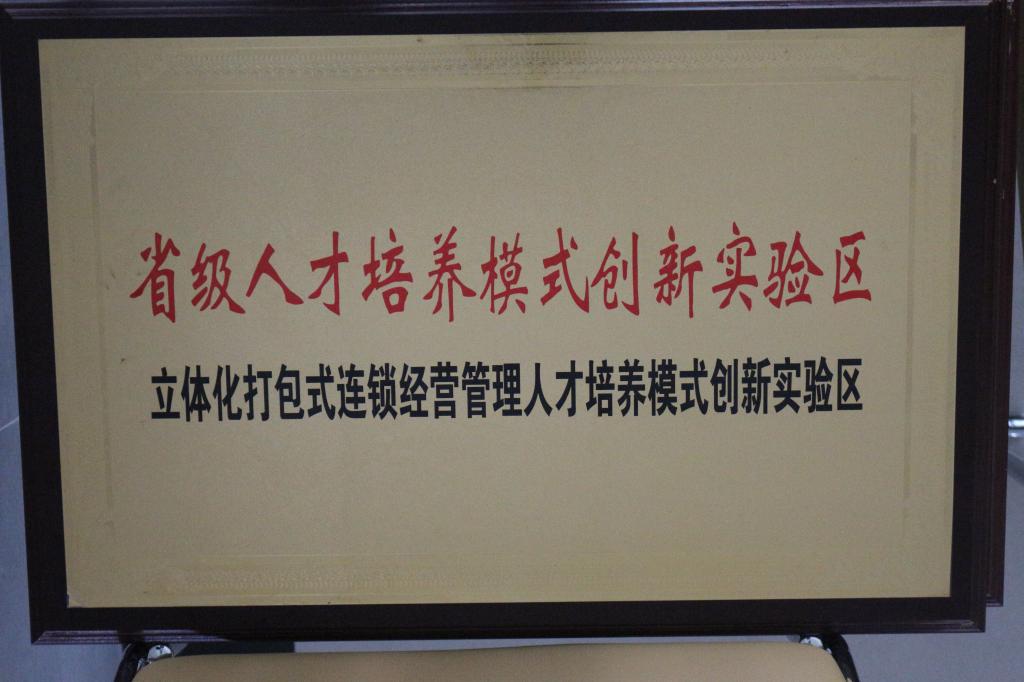 省级人才培养模式创新实验区
立体化打包式连锁经营管理人才培养模式创新实验区